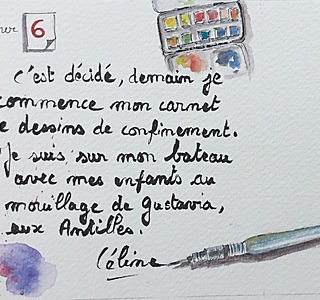 6
c'est décidé, demain je
commence mon carnet
de dessins de confinement.
Je suis sur mon bateau
avec mes enfants au
mouillage de Gustavia,
aux Antilles.
Céline